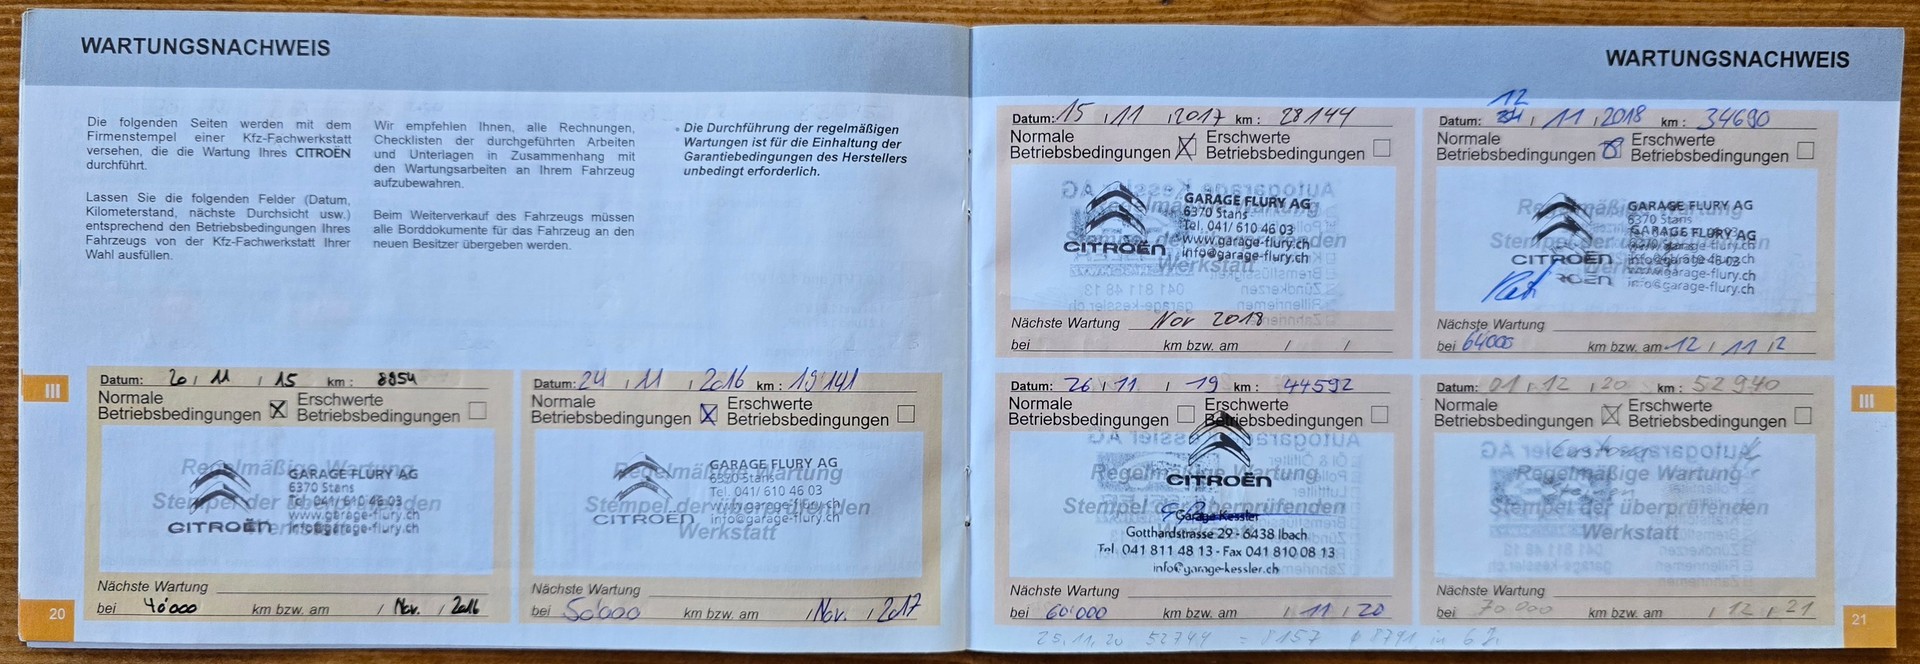 WARTUNGSNACHWEIS
Die folgenden Seiten werden mit dem
Firmenstempel einer Kfz-Fachwerkstatt
versehen, die die Wartung Ihres CITROËN
durchführt.
Lassen Sie die folgenden Felder (Datum,
Kilometerstand, nächste Durchsicht usw.)
entsprechend den Betriebsbedingungen Ihres
Fahrzeugs von der Kfz-Fachwerkstatt Ihrer
Wahl ausfüllen.
Wir empfehlen Ihnen, alle Rechnungen,
Checklisten der durchgeführten Arbeiten
und Unterlagen in Zusammenhang mit
den Wartungsarbeiten an Ihrem Fahrzeug
aufzubewahren.
Beim Weiterverkauf des Fahrzeugs müssen
alle Borddokumente für das Fahrzeug an den
neuen Besitzer übergeben werden.
Die Durchführung der regelmäßigen
Wartungen ist für die Einhaltung der
Garantiebedingungen des Herstellers
unbedingt erforderlich.
III
Datum: 20 / 11 / 15 km : 8954
Normale
Betriebsbedingungen
Erschwerte
Betriebsbedingungen
Regelmäßige Wartung
Stempel der überprüfenden
Werkstatt
CITROËN
GARAGE FLURY AG
6370 Stans
Tel. 041/ 610 46 03
www.garage-flury.ch
info@garage-flury.ch
Nächste Wartung
bei 40'000 km bzw. am / Nov. / 2016
Datum: 24 / 11 / 2016 km : 19'141
Normale
Betriebsbedingungen
Erschwerte
Betriebsbedingungen
Regelmäßige Wartung
Stempel der überprüfenden
Werkstatt
CITROËN
GARAGE FLURY AG
6370 Stans
Tel. 041/ 610 46 03
www.garage-flury.ch
info@garage-flury.ch
Nächste Wartung
bei 50'000 km bzw. am / Nov. / 2017
20
WARTUNGSNACHWEIS
Datum: 15 / 11 / 2017 km : 28144
Normale
Betriebsbedingungen
Erschwerte
Betriebsbedingungen
Regelmäßige Wartung
Stempel der überprüfenden
Werkstatt
CITROËN
GARAGE FLURY AG
6370 Stans
Tel. 041/ 610 46 03
www.garage-flury.ch
info@garage-flury.ch
Nächste Wartung Nov 2018
bei km bzw. am / /
12
Datum: / 11 / 2018 km : 34690
Normale
Betriebsbedingungen
Erschwerte
Betriebsbedingungen
Regelmäßige Wartung
Stempel der überprüfenden
Werkstatt
CITROËN
GARAGE FLURY AG
6370 Stans
GARAGE FLURY AG
info@garage-flury.ch
www.garage-flury.ch
info@garage-flury.ch
Nächste Wartung
bei 64000 km bzw. am 12 / 11 / 2
Datum: 26 / 11 / 19 km : 44592
Normale
Betriebsbedingungen
Erschwerte
Betriebsbedingungen
Regelmäßige Wartung
Stempel der überprüfenden
Werkstatt
CITROËN
Garage Kessler
Gotthardstrasse 29 - 6438 Ibach
Tel. 041 811 48 13 - Fax 041 810 08 13
info@garage-kessler.ch
Nächste Wartung
bei 60'000 km bzw. am / 11 / 20
25.11.20 52744 = 8157 8791 in 6 J.
Datum: 01 / 12 / 20 km : 52940
Normale
Betriebsbedingungen
Erschwerte
Betriebsbedingungen
Regelmäßige Wartung
Stempel der überprüfenden
Werkstatt
Nächste Wartung
bei 70000 km bzw. am / 12 / 21
III
21